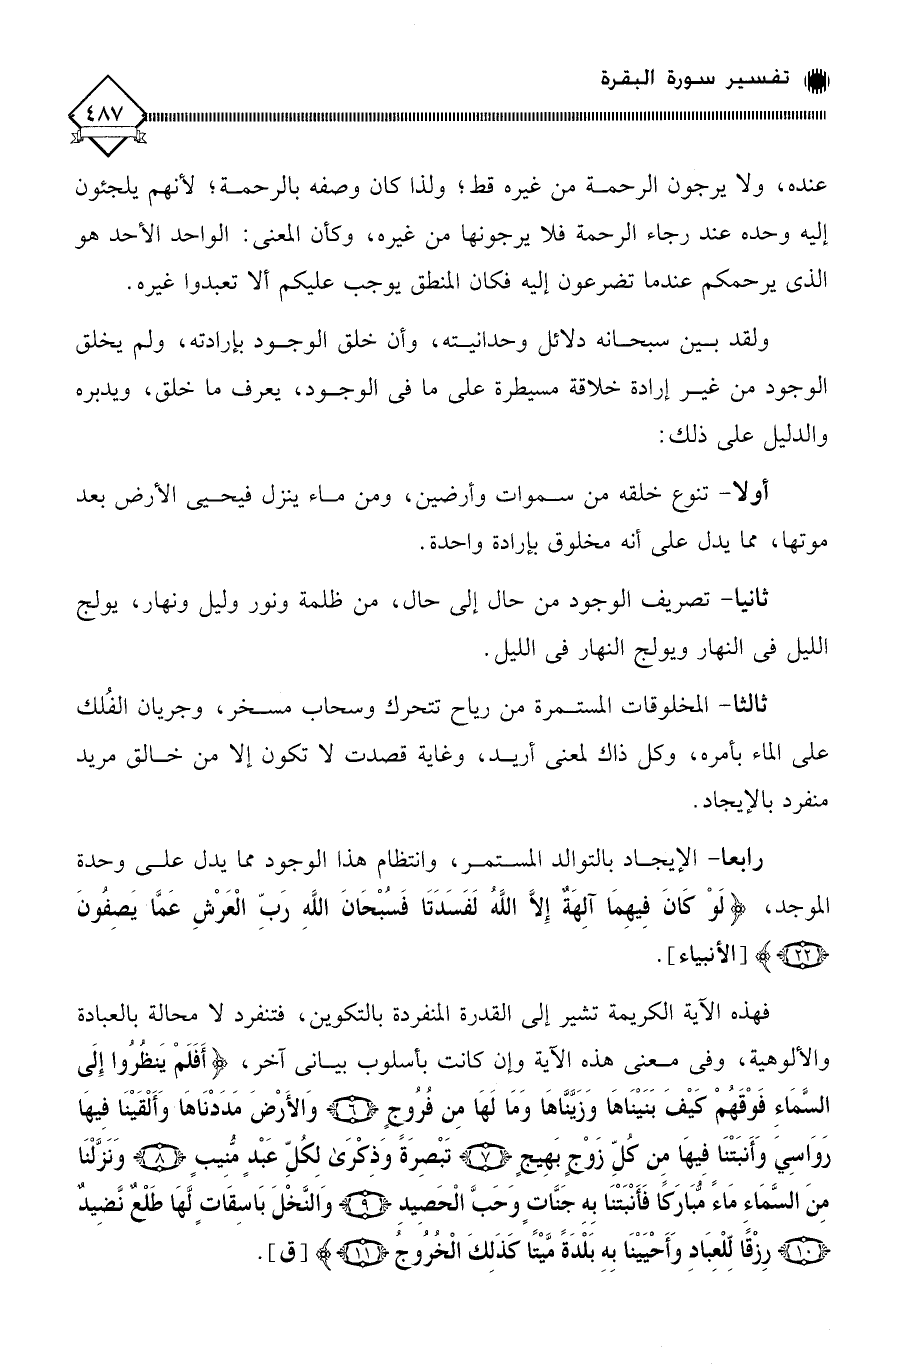 تفسير سورة البقرة
٤٨٧
عنده، ولا يرجون الرحمة من غيره قط؛ ولذا كان وصفه بالرحمة؛ لأنهم يلجئون
إليه وحده عند رجاء الرحمة فلا يرجونها من غيره، وكأن المعنى: الواحد الأحد هو
الذى يرحمكم عندما تضرعون إليه فكان المنطق يوجب عليكم ألا تعبدوا غيره.
ولقد بين سبحانه دلائل وحدانيته، وأن خلق الوجود بإرادته، ولم يخلق
الوجود من غير إرادة خلاقة مسيطرة على ما فى الوجود، يعرف ما خلق، ويدبره
والدليل على ذلك:
أولا- تنوع خلقه من سموات وأرضين، ومن ماء ينزل فيحيى الأرض بعد
موتها، مما يدل على أنه مخلوق بإرادة واحدة.
ثانيا- تصريف الوجود من حال إلى حال، من ظلمة ونور وليل ونهار، يولج
الليل فى النهار ويولج النهار فى الليل.
ثالثا- المخلوقات المستمرة من رياح تتحرك وسحاب مسخر، وجريان الفُلك
على الماء بأمره، وكل ذاك لمعنى أريد، وغاية قصدت لا تكون إلا من خالق مريد
منفرد بالإيجاد.
رابعا- الإيجاد بالتوالد المستمر، وانتظام هذا الوجود مما يدل على وحدة
الموجد، ﴿لَوْ كَانَ فِيهِمَا آلِهَةٌ إِلاَّ اللَّهُ لَفَسَدَتَا فَسُبْحَانَ اللَّهِ رَبِّ الْعَرْشِ عَمَّا يَصِفُونَ
﴿٢٢﴾﴾ [الأنبياء].
فهذه الآية الكريمة تشير إلى القدرة المنفردة بالتكوين، فتنفرد لا محالة بالعبادة
والألوهية، وفى معنى هذه الآية وإن كانت بأسلوب بيانى آخر، ﴿أَفَلَمْ يَنظُرُوا إِلَى
السَّمَاءِ فَوْقَهُمْ كَيْفَ بَنَيْنَاهَا وَزَيَّنَّاهَا وَمَا لَهَا مِن فُرُوجٍ ﴿٦﴾ وَالأَرْضَ مَدَدْنَاهَا وَأَلْقَيْنَا فِيهَا
رَوَاسِيَ وَأَنبَتْنَا فِيهَا مِن كُلِّ زَوْجٍ بَهِيجٍ ﴿٧﴾ تَبْصِرَةً وَذِكْرَىٰ لِكُلِّ عَبْدٍ مُّنِيبٍ ﴿٨﴾ وَنَزَّلْنَا
مِنَ السَّمَاءِ مَاءً مُّبَارَكًا فَأَنبَتْنَا بِهِ جَنَّاتٍ وَحَبَّ الْحَصِيدِ ﴿٩﴾ وَالنَّخْلَ بَاسِقَاتٍ لَّهَا طَلْعٌ نَّضِيدٌ
﴿١٠﴾ رِزْقًا لِّلْعِبَادِ وَأَحْيَيْنَا بِهِ بَلْدَةً مَّيْتًا كَذَلِكَ الْخُرُوجُ ﴿١١﴾﴾ [ق].